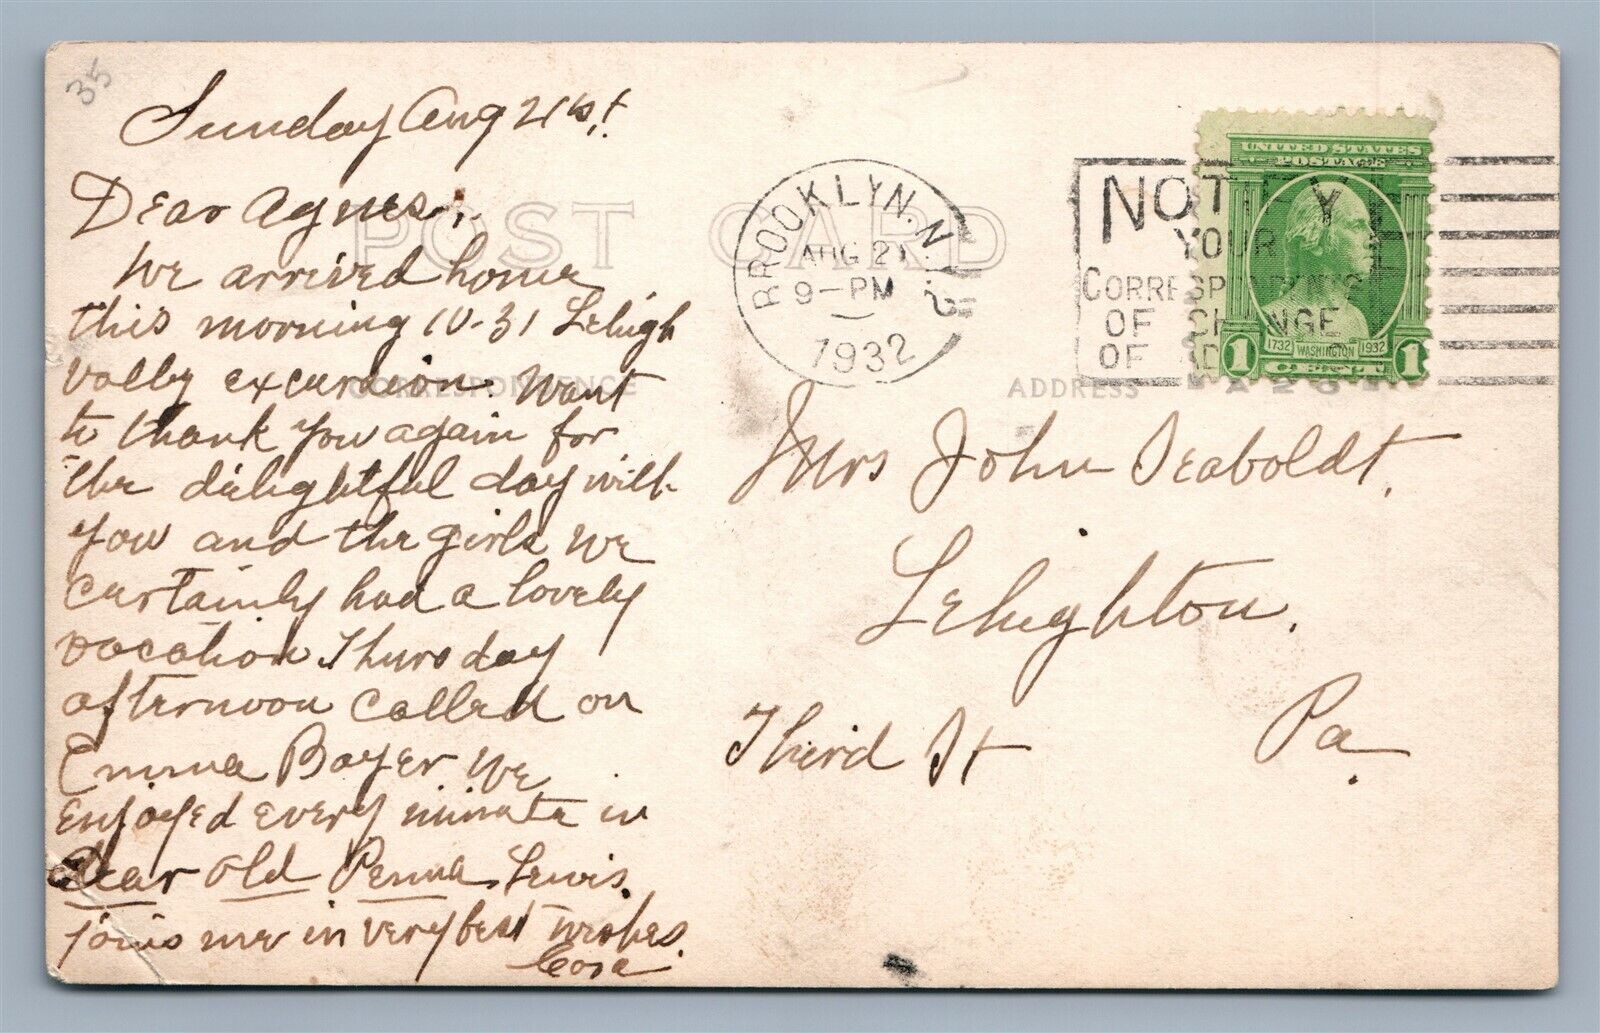 35
Sunday Aug 21st.
Dear Agnes:
We arrived home
this morning 10-31 Lehigh
Vally excursion. Want
to thank you again for
the delightful day with
you and the girls We
certainly had a lovely
vacation Thursday
afternoon called on
Emma Boyer. We
enjoyed every minute in
Dear old Penna. Lewis.
joins me in very best wishes.
Cora
POST CARD
CORRESPONDENCE
ADDRESS
BROOKLYN, N.Y.
AUG 21
9-PM
1932
NOTIFY
YOUR
CORRESPONDENTS
OF CHANGE
OF ADDRESS
UNITED STATES
POSTAGE
1732 WASHINGTON 1932
1 CENT 1
Mrs John Seaboldt.
Lehighton.
Third St Pa.